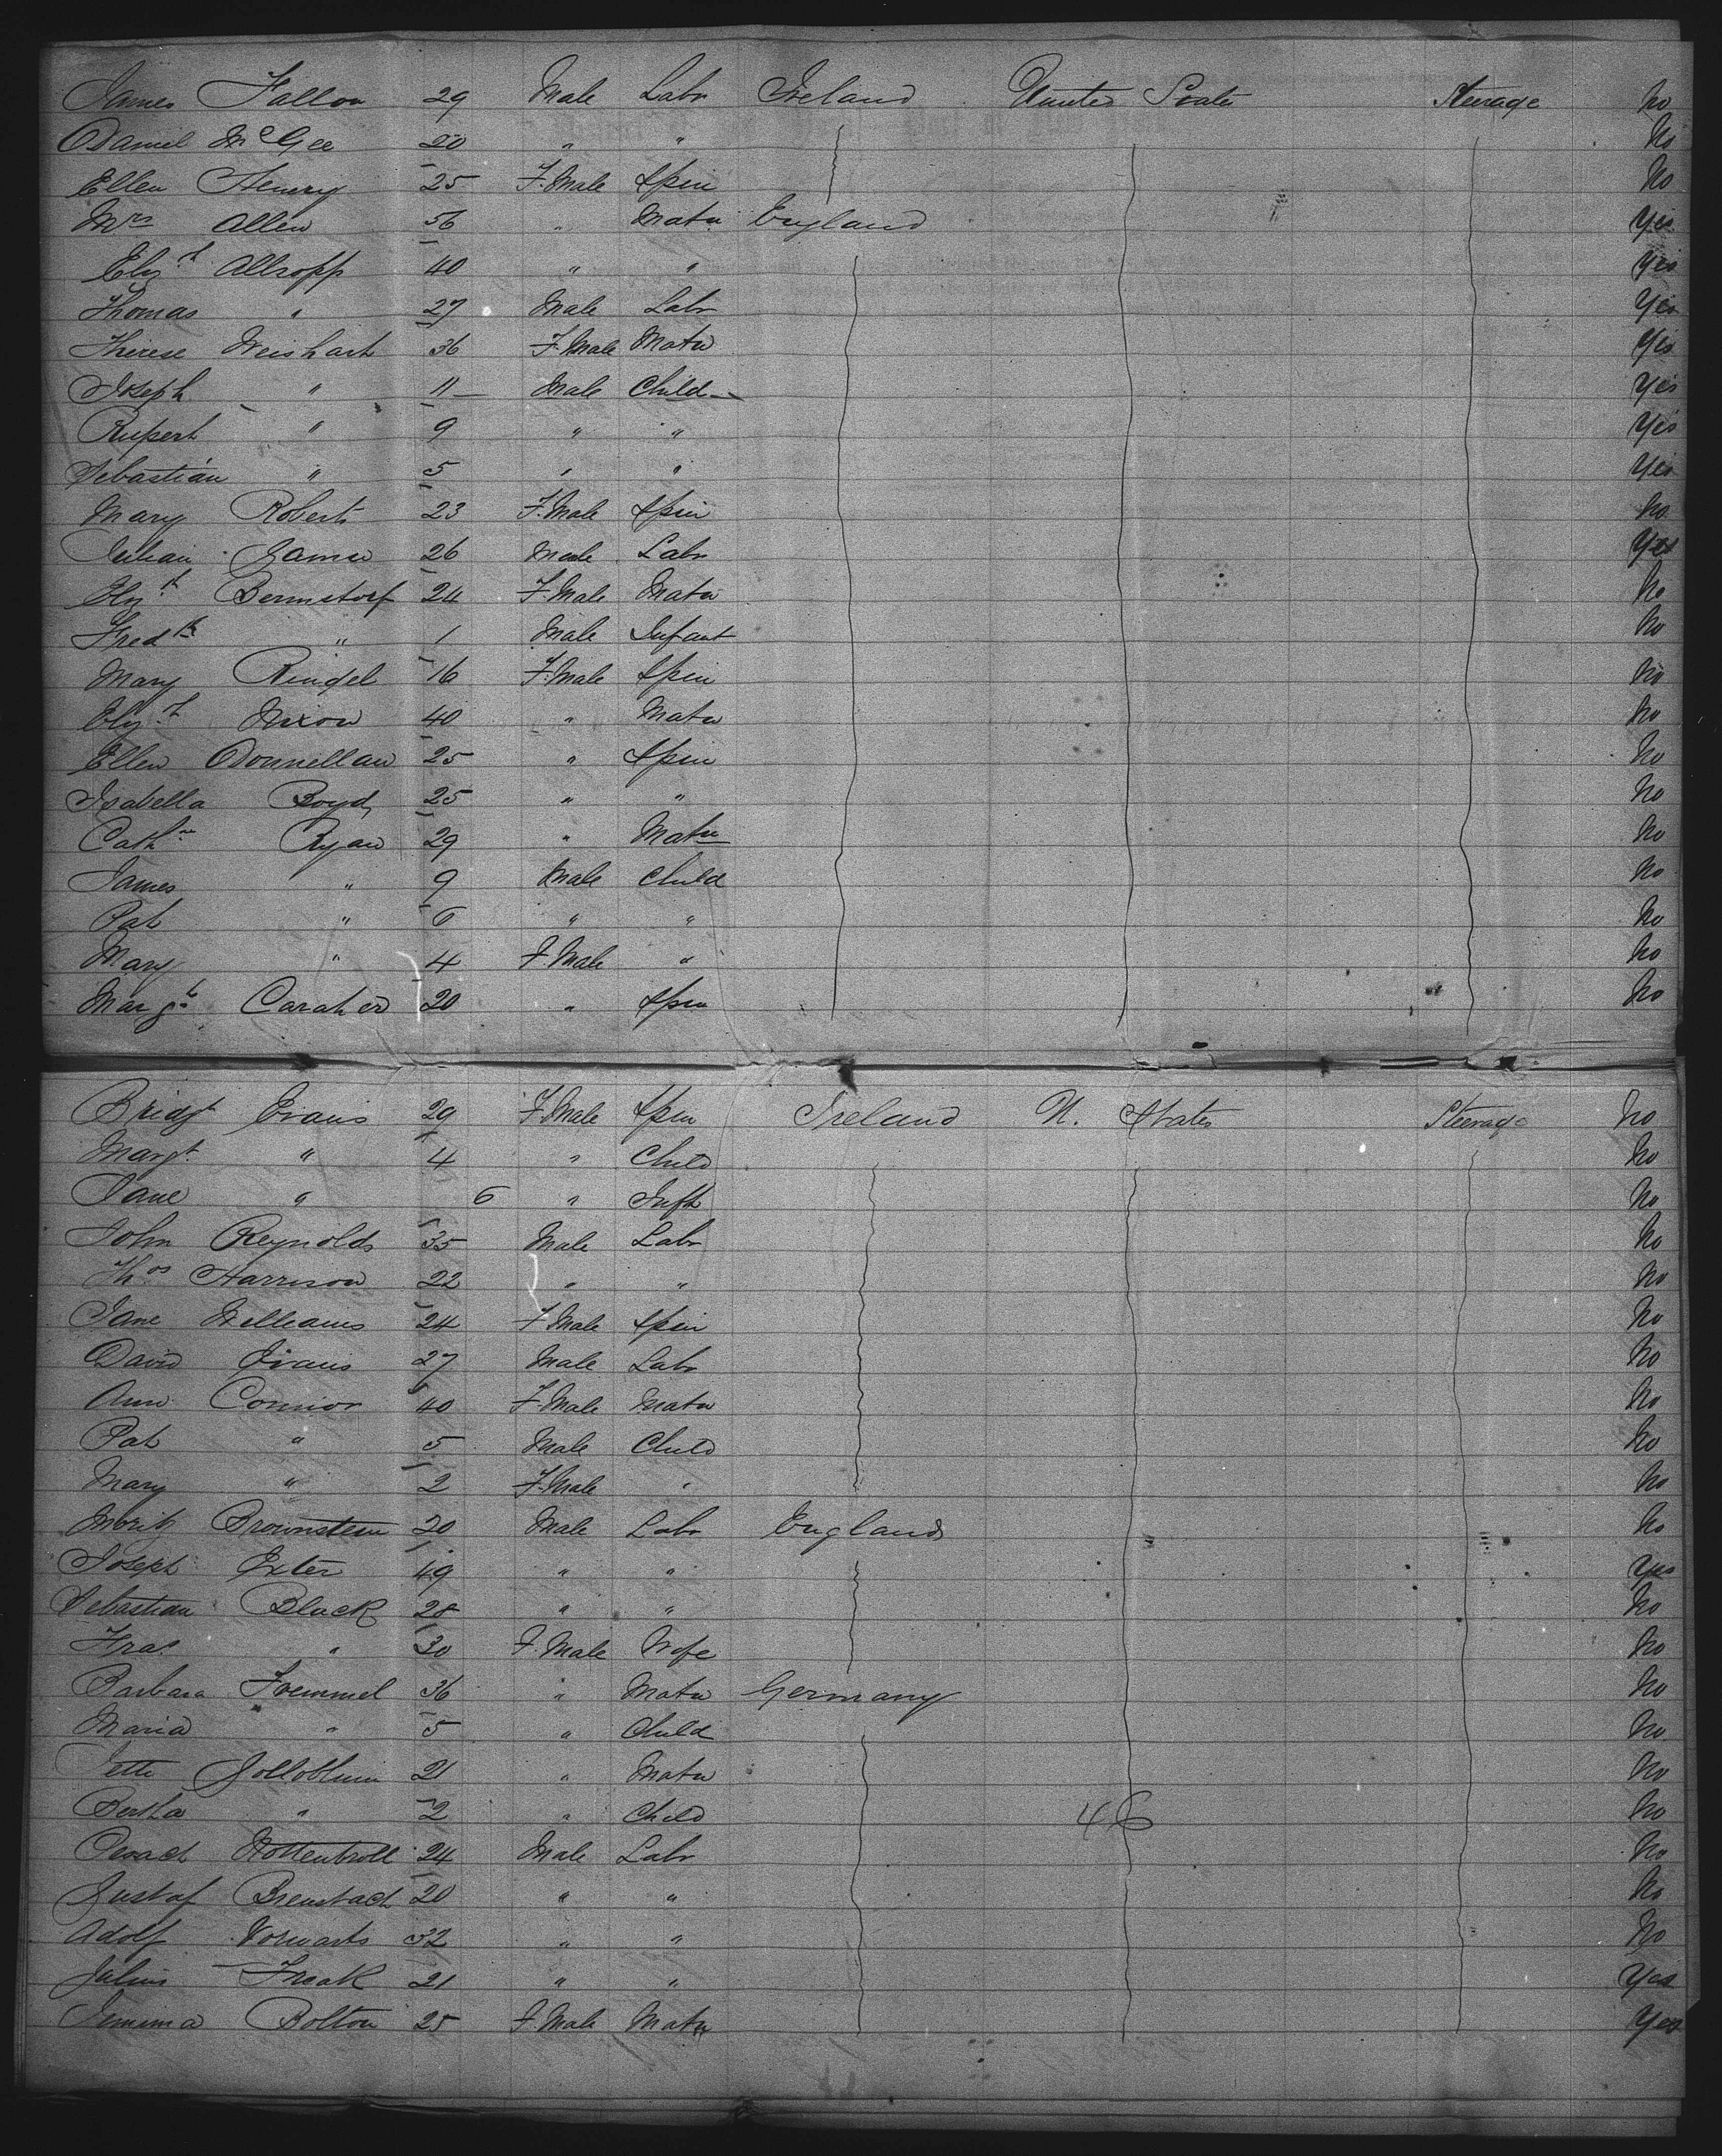 James Fallon 29 Male Labr Ireland United States Steerage No
Daniel McGee 20 " " No
Ellen Henry 25 F.Male Spin No
Mrs Allen 56 " Matn England " Yes
Elizth Allsopp 40 " " Yes
Thomas " 27 Male Labr Yes
Therese Weishart 36 F.Male Matn Yes
Joseph " 11 Male Child Yes
Rupert " 9 " " Yes
Sebastian " 5 " " Yes
Mary Roberts 23 F.Male Spin No
26 Male Labr Yes
Elizth Bernstorf 24 F.Male Matn No
Fredk " 1 Male Infant No
Mary Ringel 16 F.Male Spin No
Elizt Nixon 40 " Matn No
Ellen Donnellan 25 " Spin No
Isabella Boyd 25 " " No
Cathn Ryan 29 " Matn No
James " 9 Male Child No
Pat " 6 " " No
Mary " 4 F.Male " No
Margt Caraher 20 " Spin No
Bridgt Evans 29 F.Male Spin Ireland U. States Steerage No
Margt " 4 " Child No
Jane " 6 " Inft No
John Reynolds 35 Male Labr No
Thos Harrison 22 " " No
Jane Williams 24 F.Male Spin No
David Evans 27 Male Labr No
Ann Connior 40 F.Male Matn No
Pat " 5 Male Child No
Mary " 2 F.Male " No
Moritz Brownstein 20 Male Labr England " " No
Joseph Exter 49 " " Yes
Sebastian Black 28 " " No
Fras " 30 F.Male Wife No
Barbara 36 " Matn Germany No
Maria " 5 " Child No
Jette 21 " Matn No
Bertha " 2 " Child 46 No
24 Male Labr No
Gustaf 20 " " No
Adolf Vorwarts 32 " " No
Julius Freak 21 " " Yes
Jemima Bolton 25 F.Male Matn Yes